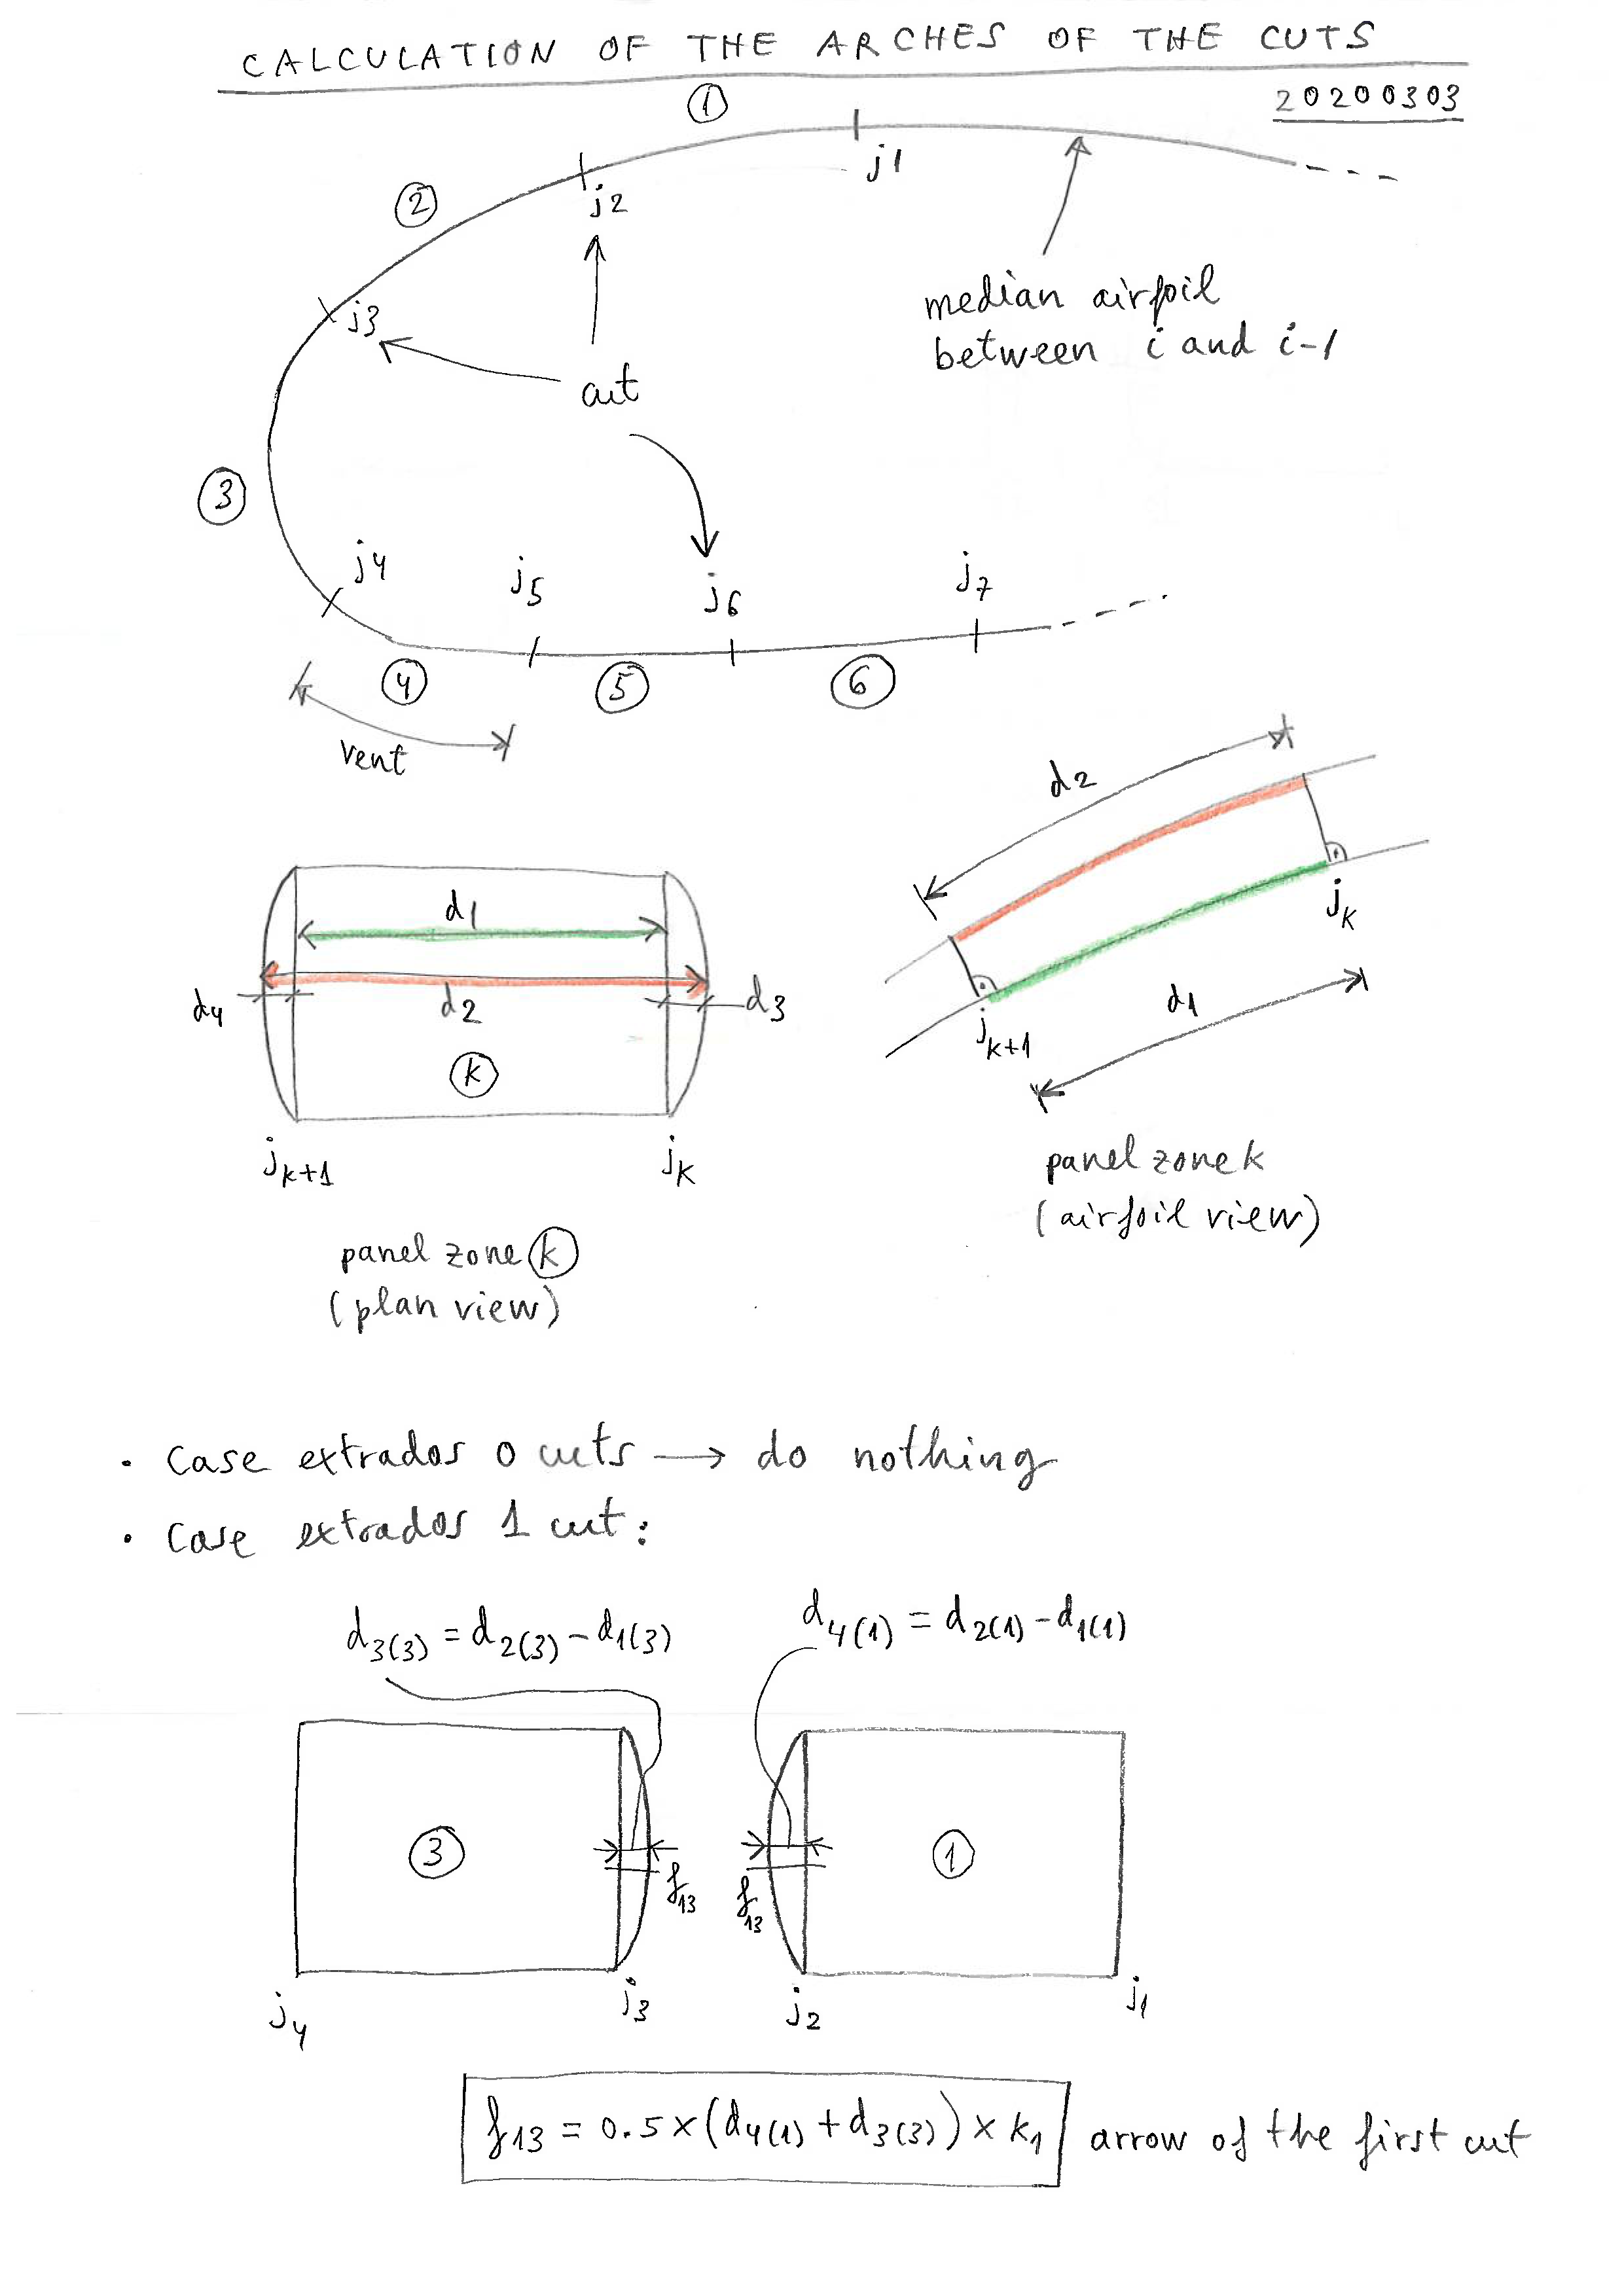 CALCULATION OF THE ARCHES OF THE CUTS
20200303
1
j1
j2
2
j3
cut
median airfoil
between i and i-1
3
j4
j5
j6
j7
4
5
6
vent
d2
d1
jk
jk+1
d1
panel zone k
(airfoil view)
d1
d4
d2
d3
k
jk+1
jk
panel zone k
(plan view)
· Case extrados 0 cuts → do nothing
· Case extrados 1 cut:
d3(3) = d2(3) - d1(3)
d4(1) = d2(1) - d1(1)
3
f13
f13
1
j4
j3
j2
j1
f13 = 0.5 × (d4(1) + d3(3)) × k1 arrow of the first cut